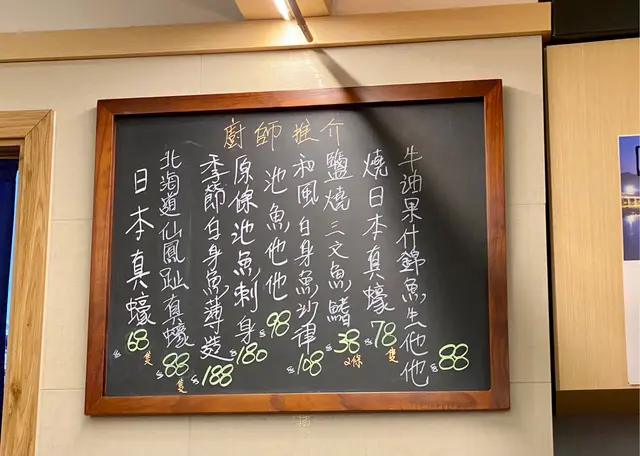 廚師推介
牛油果什錦魚生他他 $88
燒日本真蠔 $78隻
鹽燒三文魚鰭 $38 2條
和風白身魚沙律 $108
池魚他他 $98
原條池魚刺身 $180
季節白身魚薄造 $188
北海道仙鳳趾真蠔 $88隻
日本真蠔 $68隻